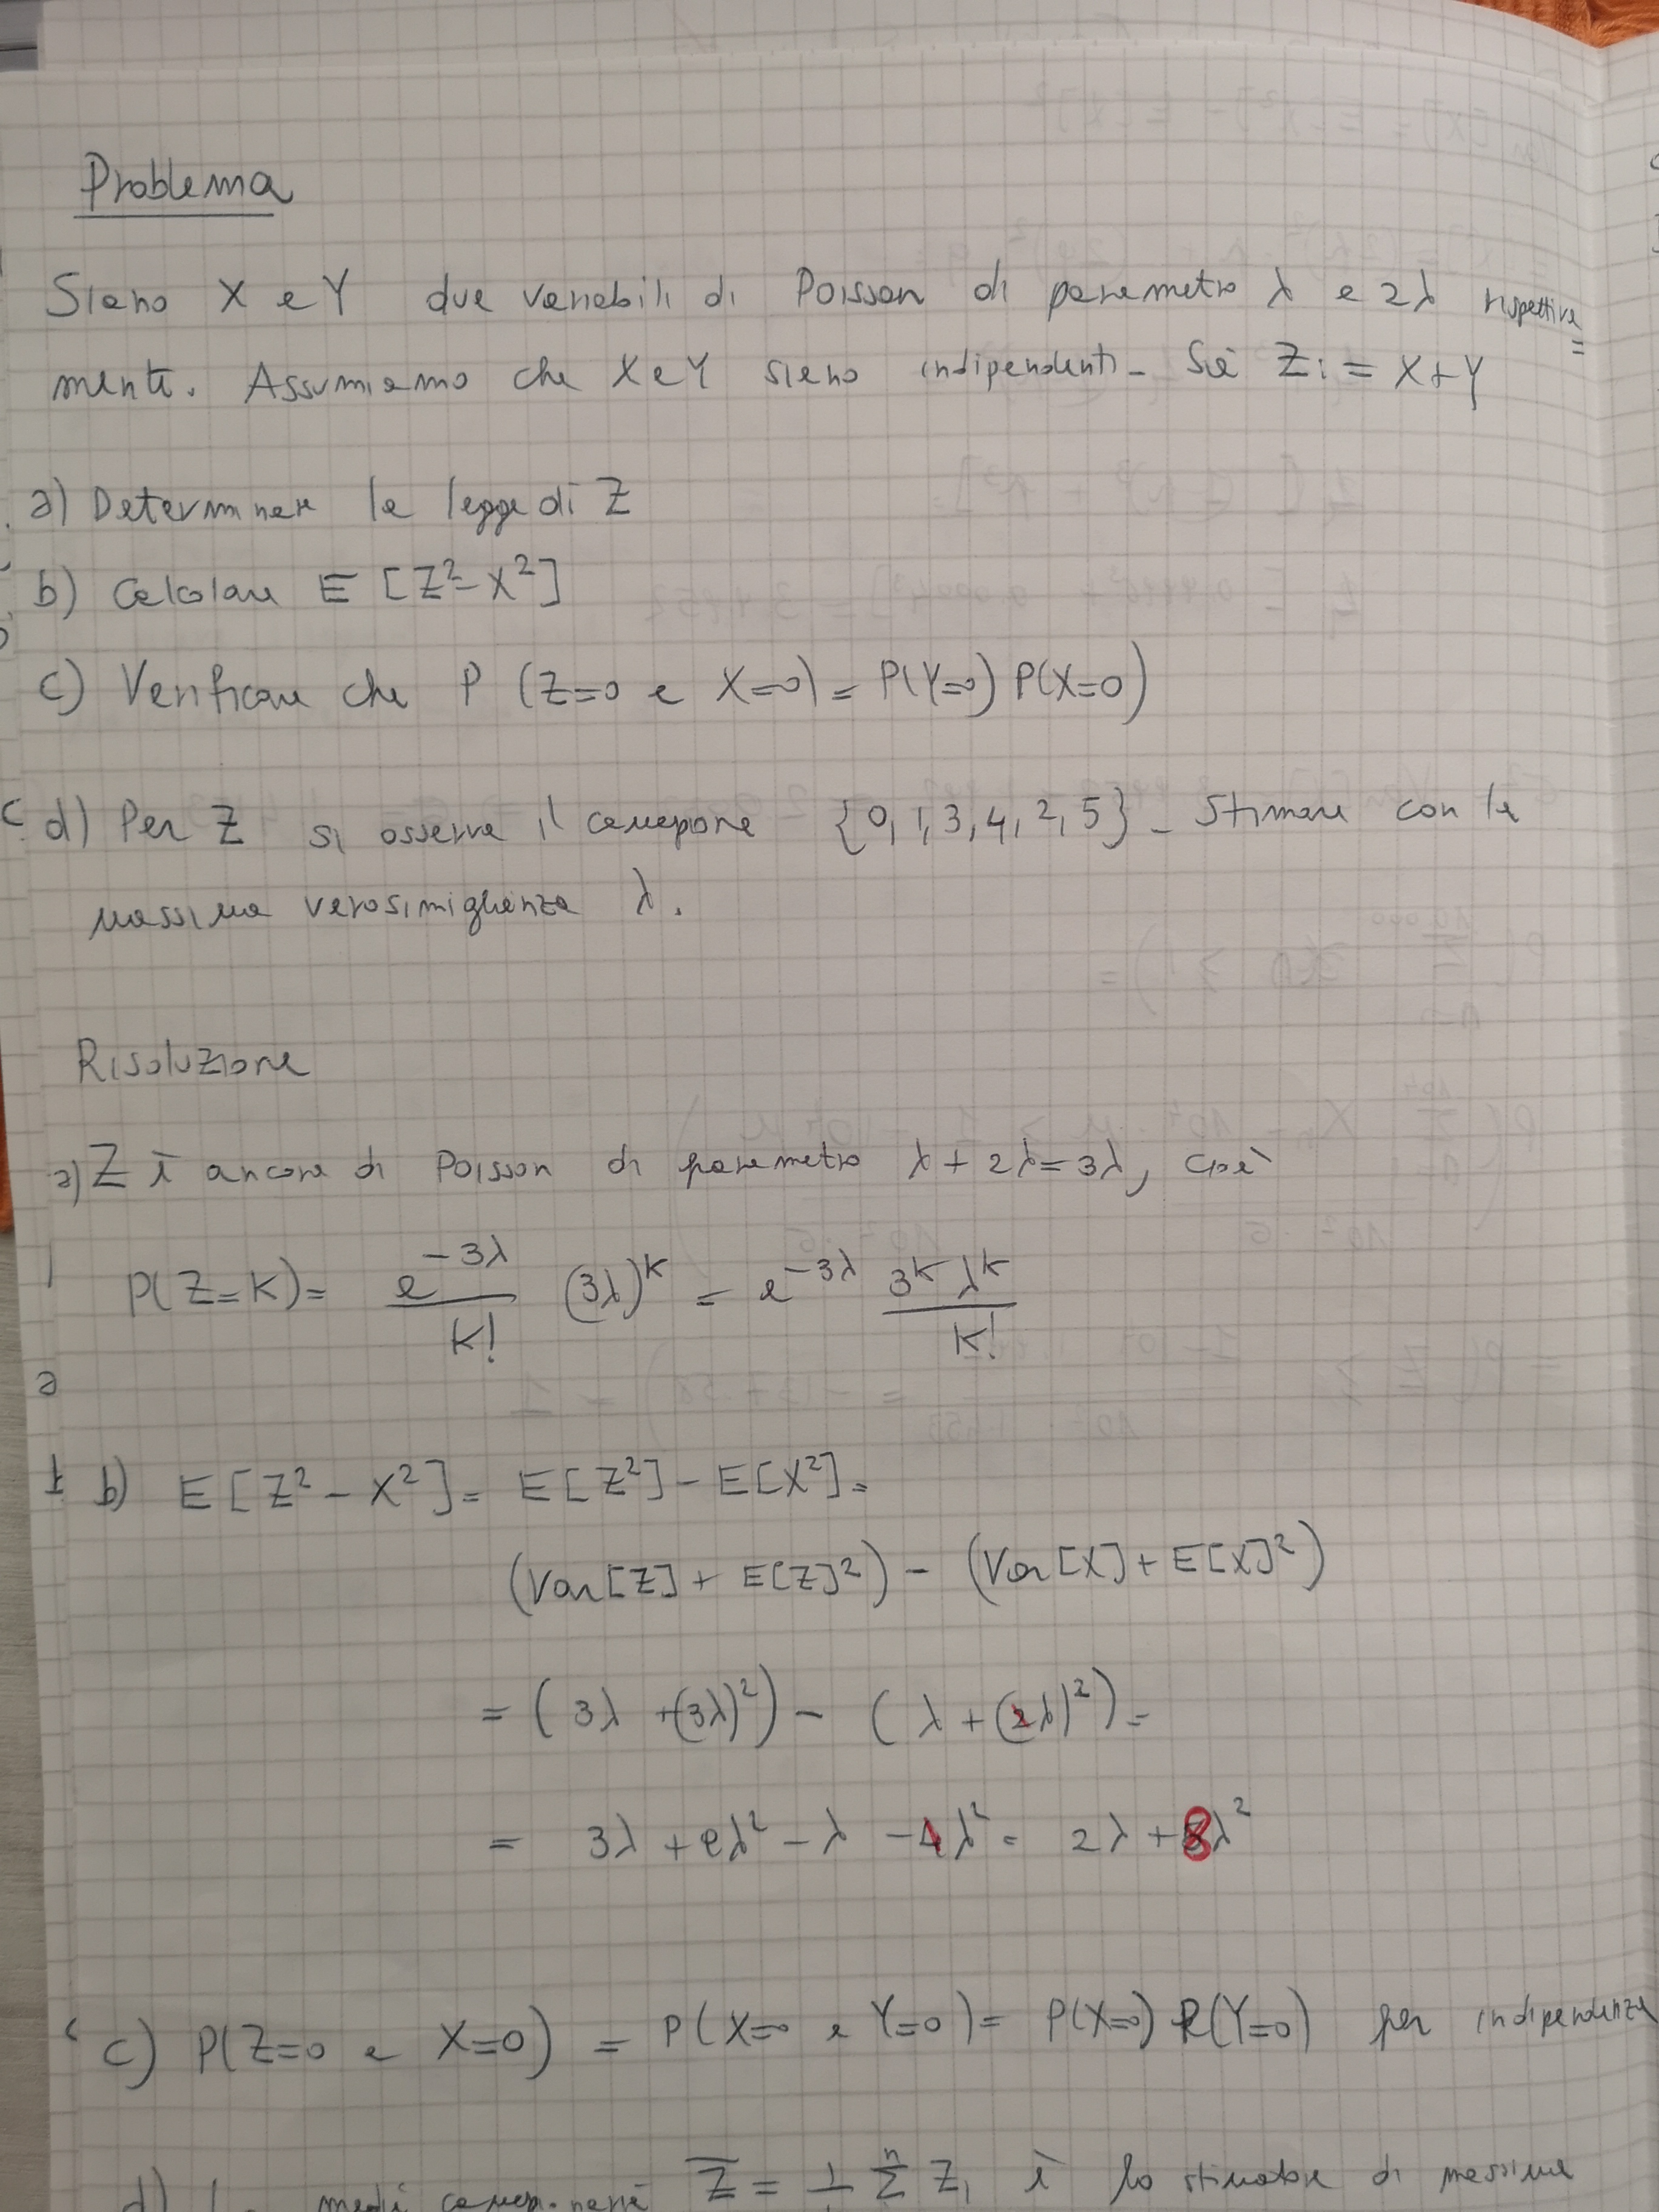 Problema
Siano X e Y due variabili di Poisson di parametro λ e 2λ rispettiva=
mente. Assumiamo che X e Y siano indipendenti. Sia Z:= X+Y
a) Determinare la legge di Z
b) Calcolare E [Z²-X²]
c) Verificare che P (Z=0 e X=0) = P(Y=0) P(X=0)
d) Per Z si osserva il campione {0,1,3,4,2,5}. Stimare con la
massima verosimiglianza λ.
Risoluzione
a) Z è ancora di Poisson di parametro λ + 2λ = 3λ, cioè
P(Z=K) = e^{-3λ}/K! (3λ)^K = e^{-3λ} 3^K λ^K/K!
b) E[Z² - X²] = E[Z²] - E[X²] =
(Var[Z] + E[Z]²) - (Var[X] + E[X]²)
= (3λ + (3λ)²) - (λ + (λ)²) =
= 3λ + 9λ² - λ - λ² = 2λ + 8λ²
c) P(Z=0 e X=0) = P(X=0 e Y=0) = P(X=0) P(Y=0) per indipendenza
d) Z̄ = Σ Z è lo stimatore di massima